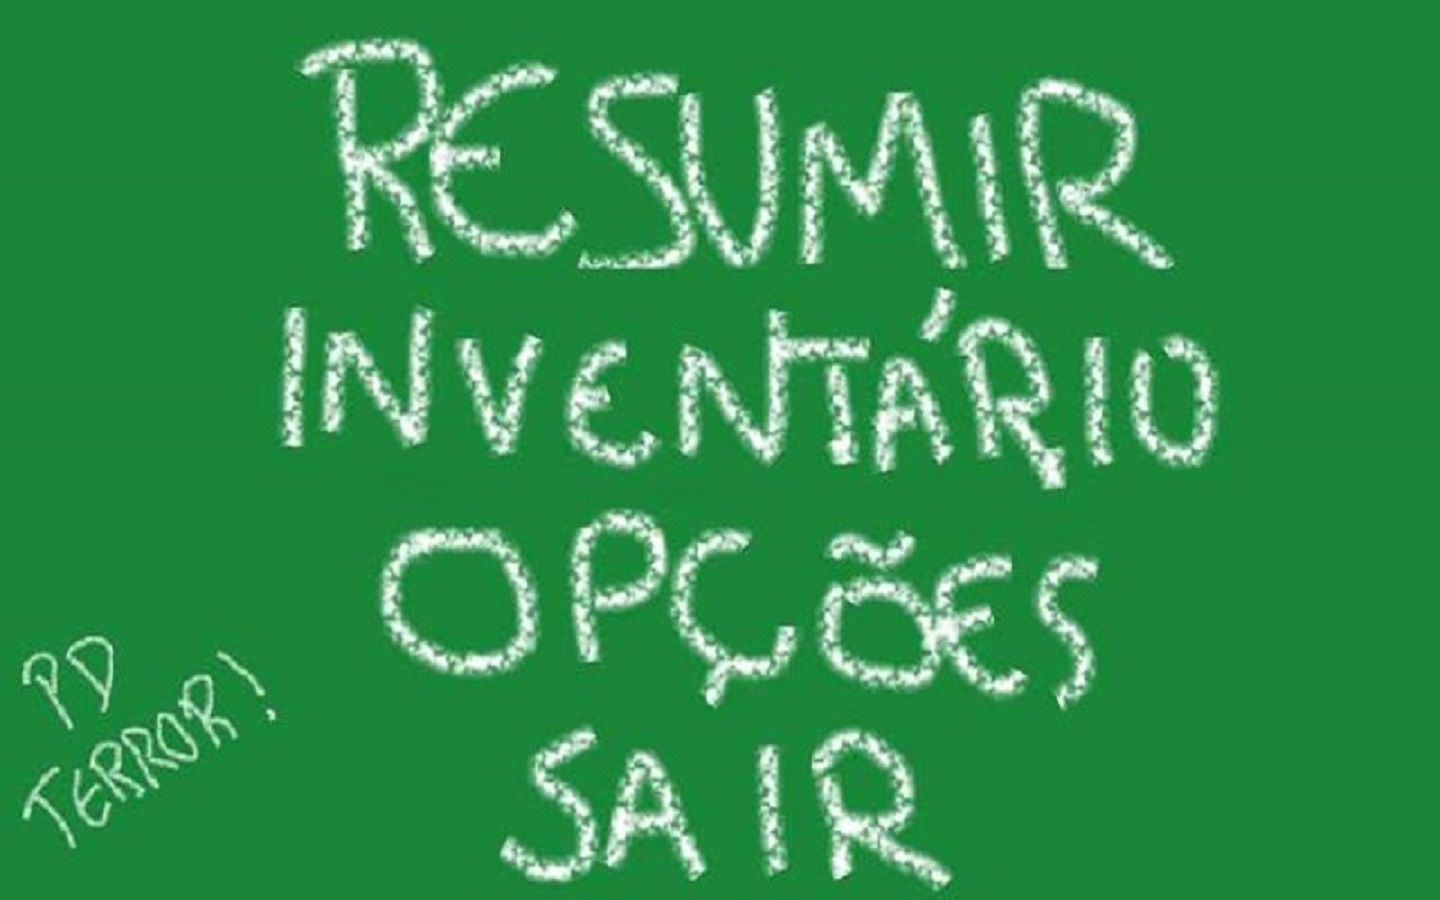 RESUMIR
INVENTÁRIO
OPÇÕES
SAIR
PD
TERROR!